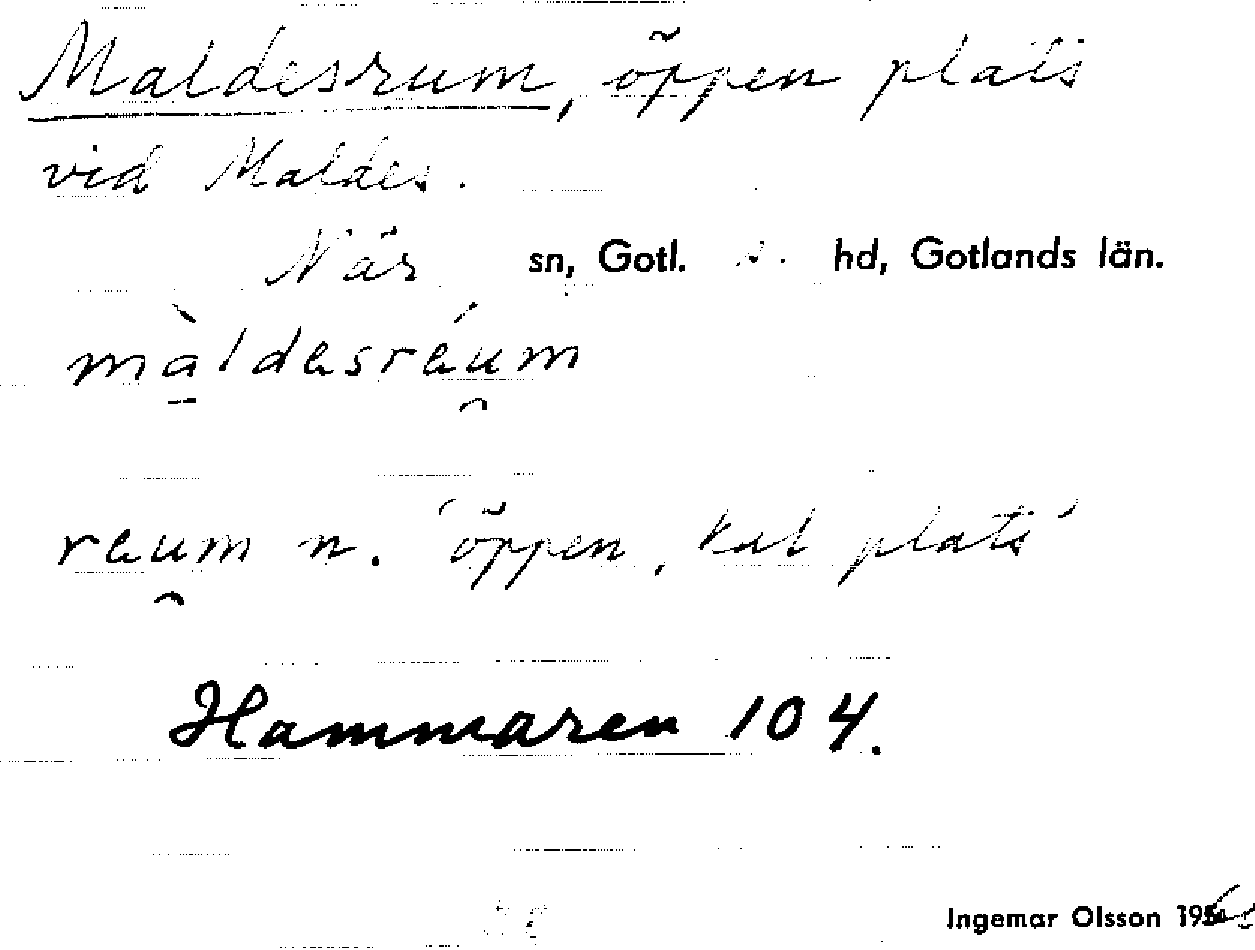 Maldesrum, öppen plats
vid Maldes.
När sn, Gotl. s. hd, Gotlands län.
màldesréum
reum n. 'öppen, kal plats'
Hammaren 104.
Ingemar Olsson